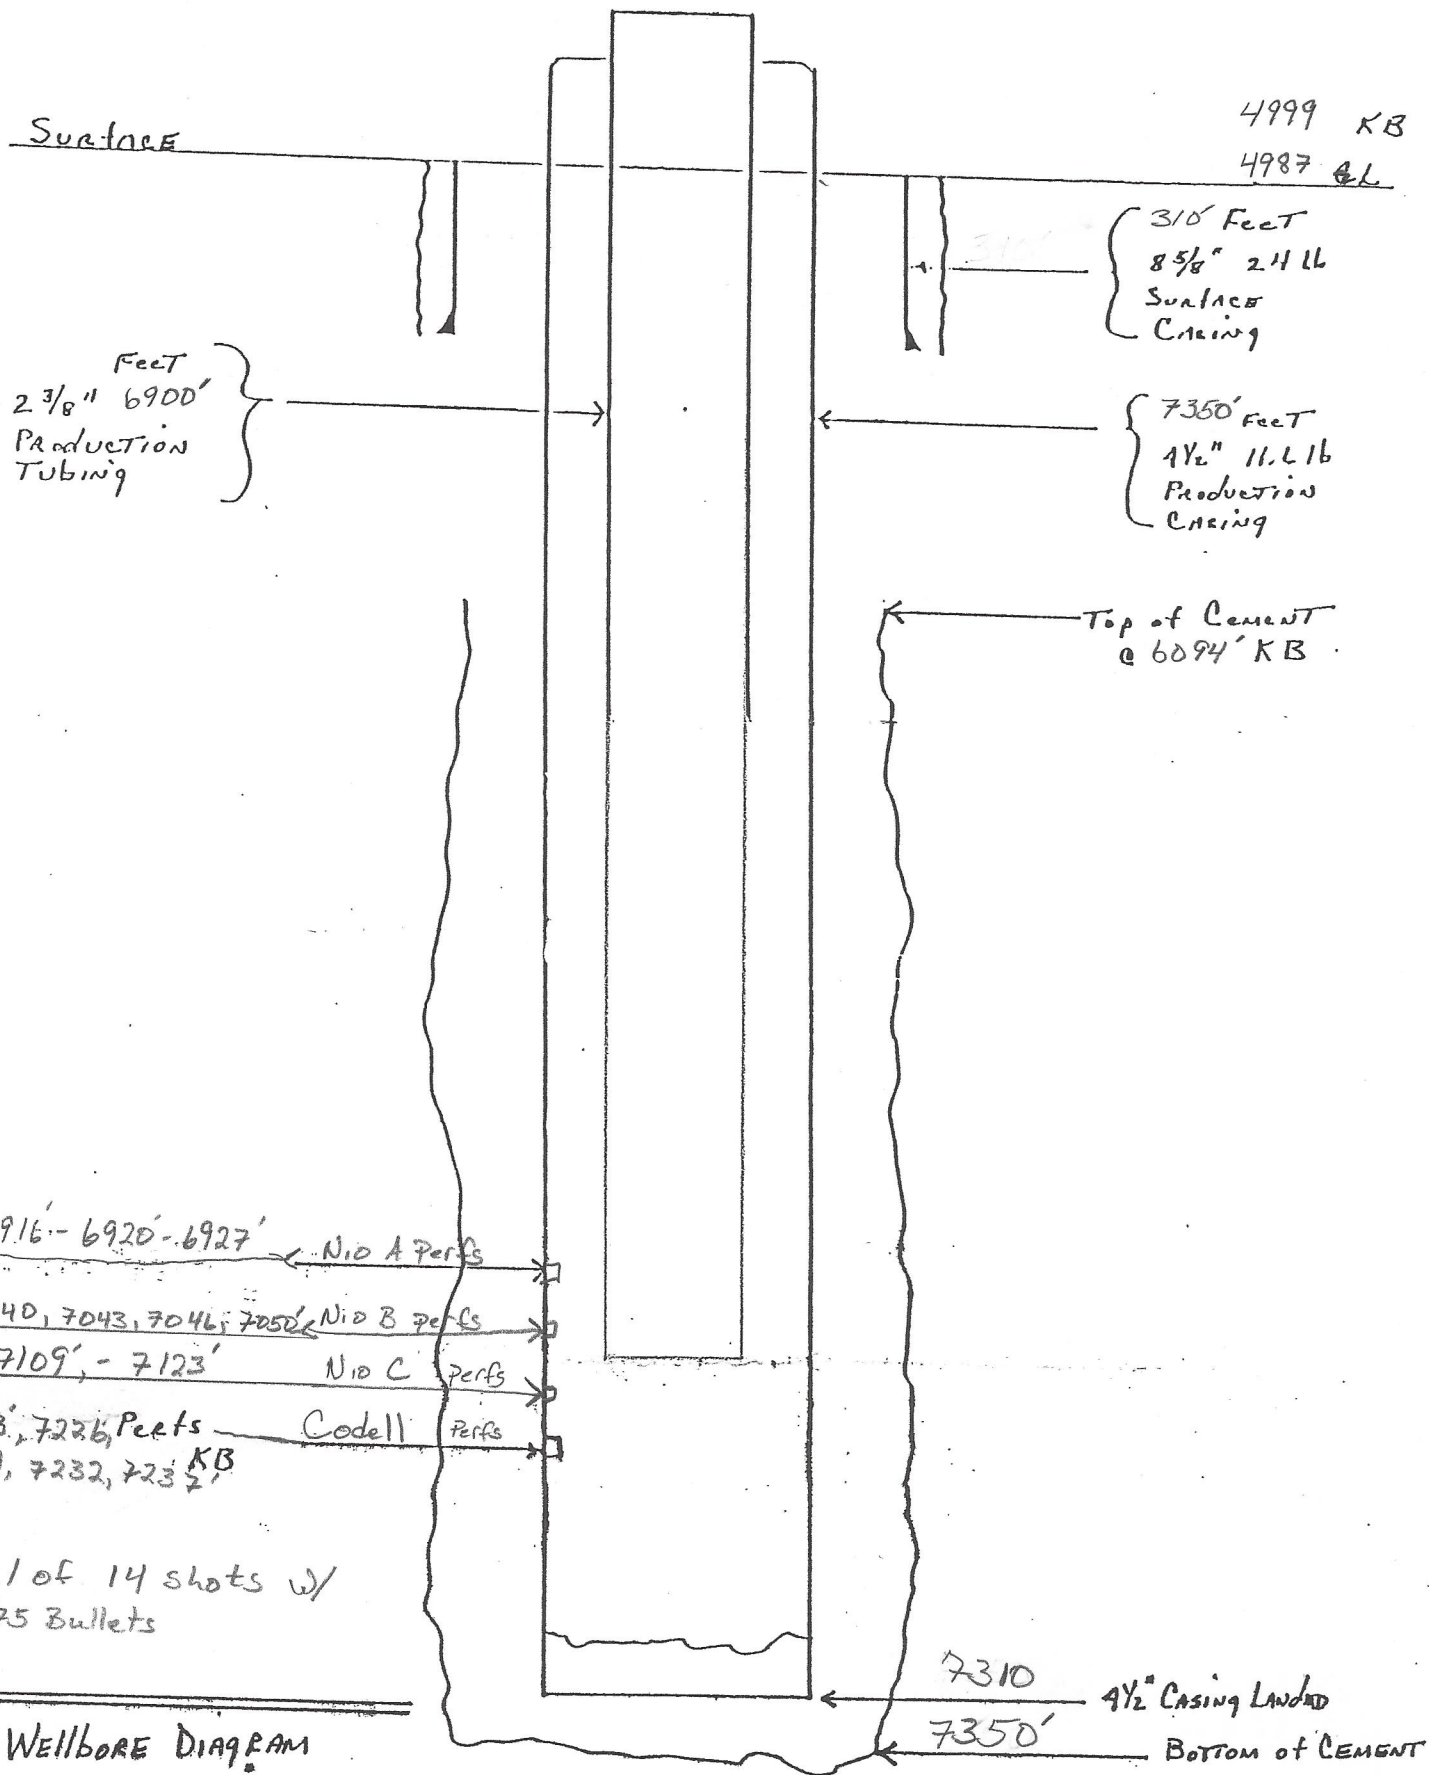 Surface
4999 KB
4987 GL
310' Feet
8 5/8" 24 lb
Surface
Casing
Feet
2 3/8" 6900'
Production
Tubing
7350' Feet
4 1/2" 11.6 lb
Production
Casing
Top of Cement
@ 6094' KB
916' - 6920' - 6927' Nio A Perfs
40, 7043, 7046, 7050' Nio B perfs
7109', - 7123' Nio C Perfs
3', 7226, Perfs Codell Perfs
, 7232, 7237' KB
l of 14 shots w/
75 Bullets
7310 4 1/2" Casing Landed
7350' Bottom of Cement
Wellbore Diagram